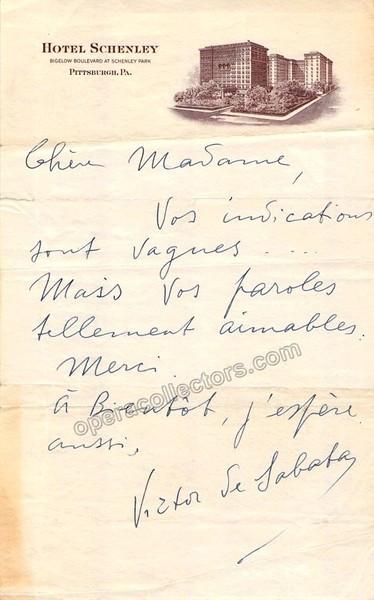 HOTEL SCHENLEY
BIGELOW BOULEVARD AT SCHENLEY PARK
PITTSBURGH, PA.
Chère Madame,
Vos indications
sont vagues ....
Mais vos paroles
tellement aimables.
Merci.
operacollectors.com
À Bientôt, j'espère
aussi,
Victor de Sabata